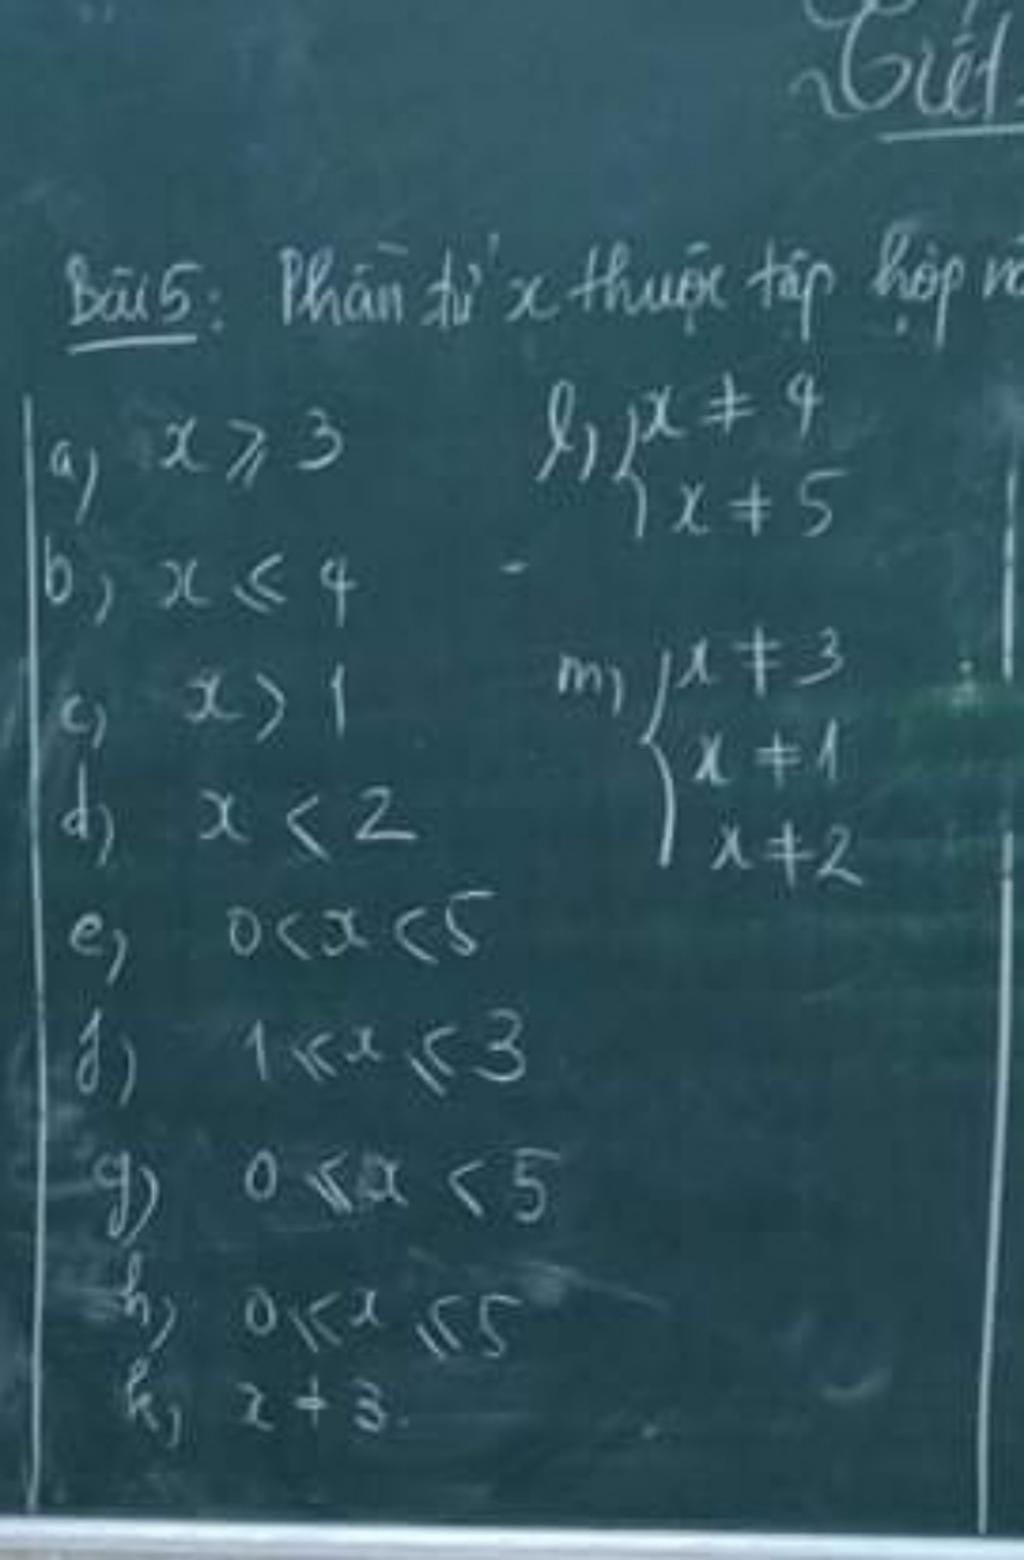 Tiết
Bài 5: Phần tử x thuộc tập hợp
a) x ⩾ 3
b) x ⩽ 4
c) x > 1
d) x < 2
e) 0 < x < 5
f) 1 ⩽ x ⩽ 3
g) 0 ⩽ x < 5
h) 0 ⩽ x ⩽ 5
k) x ≠ 3.
l) { x ≠ 4
x ≠ 5
m) { x ≠ 3
x ≠ 1
x ≠ 2